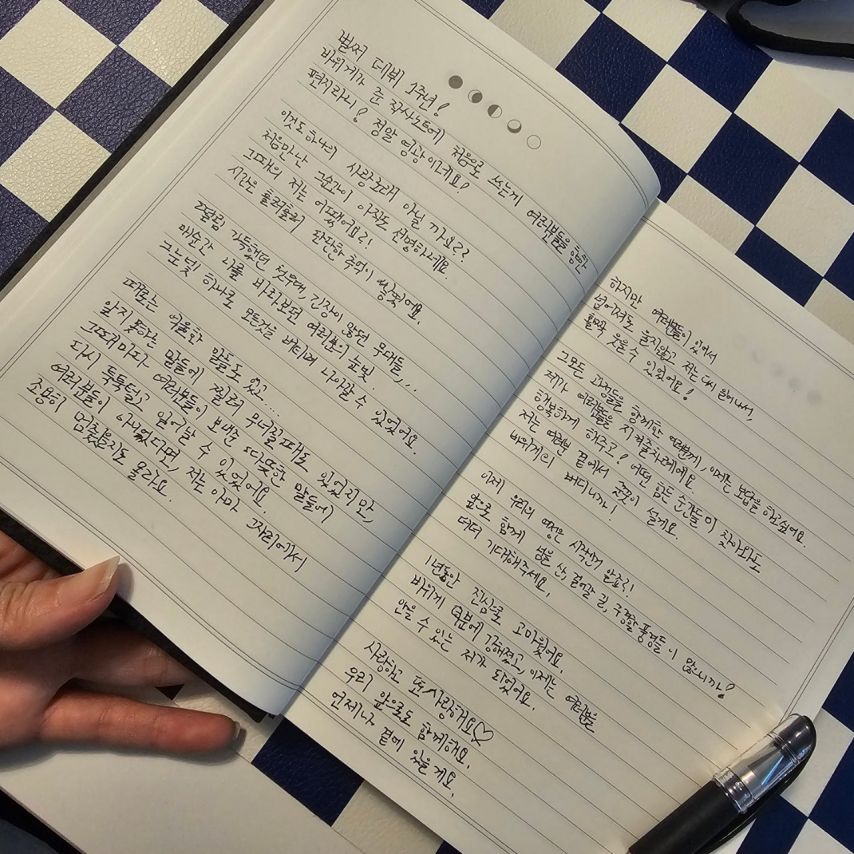 벌써 데뷔 1주년!
바위게가 준 작사노트에 처음으로 쓰는게 여러분들을 향한
편지라니! 정말 영광이네요!
이것도 하나의 사랑노래 아닐까요??
처음만난 그순간이 아직도 선명하네요.
그때의 저는 어땠어요?!
시간은 흘러흘러 단단한 추억이 쌓였어요.
떨림 가득했던 첫무대, 긴장이 많던 무대들,,,
매순간 나를 바라보던 여러분의 눈빛.
그눈빛 하나로 모든것을 버티며 나아갈 수 있었어요.
때로는 억울한 말들도 있고...
알지못하는 말들에 찔려 무너질때도 있었지만,
그때마다 여러분들이 보내준 따뜻한 말들에
다시 툭툭털고 일어날 수 있었어요.
여러분들이 아니었다면, 저는 아마 그자리에서
조용히 멈췄을지도 몰라요.
하지만 여러분들이 있어서
넘어져도 울지않고 저는 다시 일어나서,
활짝 웃을 수 있었어요!
그모든 과정들을 함께한 여러분께, 이제는 보답을 하고싶어요.
제가 여러분들을 지켜줄차례에요.
행복하게 해주고! 어떤 힘든 순간들이 찾아와도
저는 여러분 곁에서 굳굳이 설게요.
바위게의 버디니까!
아직 우리의 여정은 시작인거 알죠?!
앞으로 함께 넘을 산, 걸어갈 길, 구경할 풍경들이 많으니까!
더더 기대해주세요.
1년동안 진심으로 고마웠어요.
바위게 덕분에 강해졌고, 이제는 여러분을
안을 수 있는 제가 되었어요.
사랑하고 또 사랑해요♡
우리 앞으로도 함께해요.
언제나 곁에 있을게요.